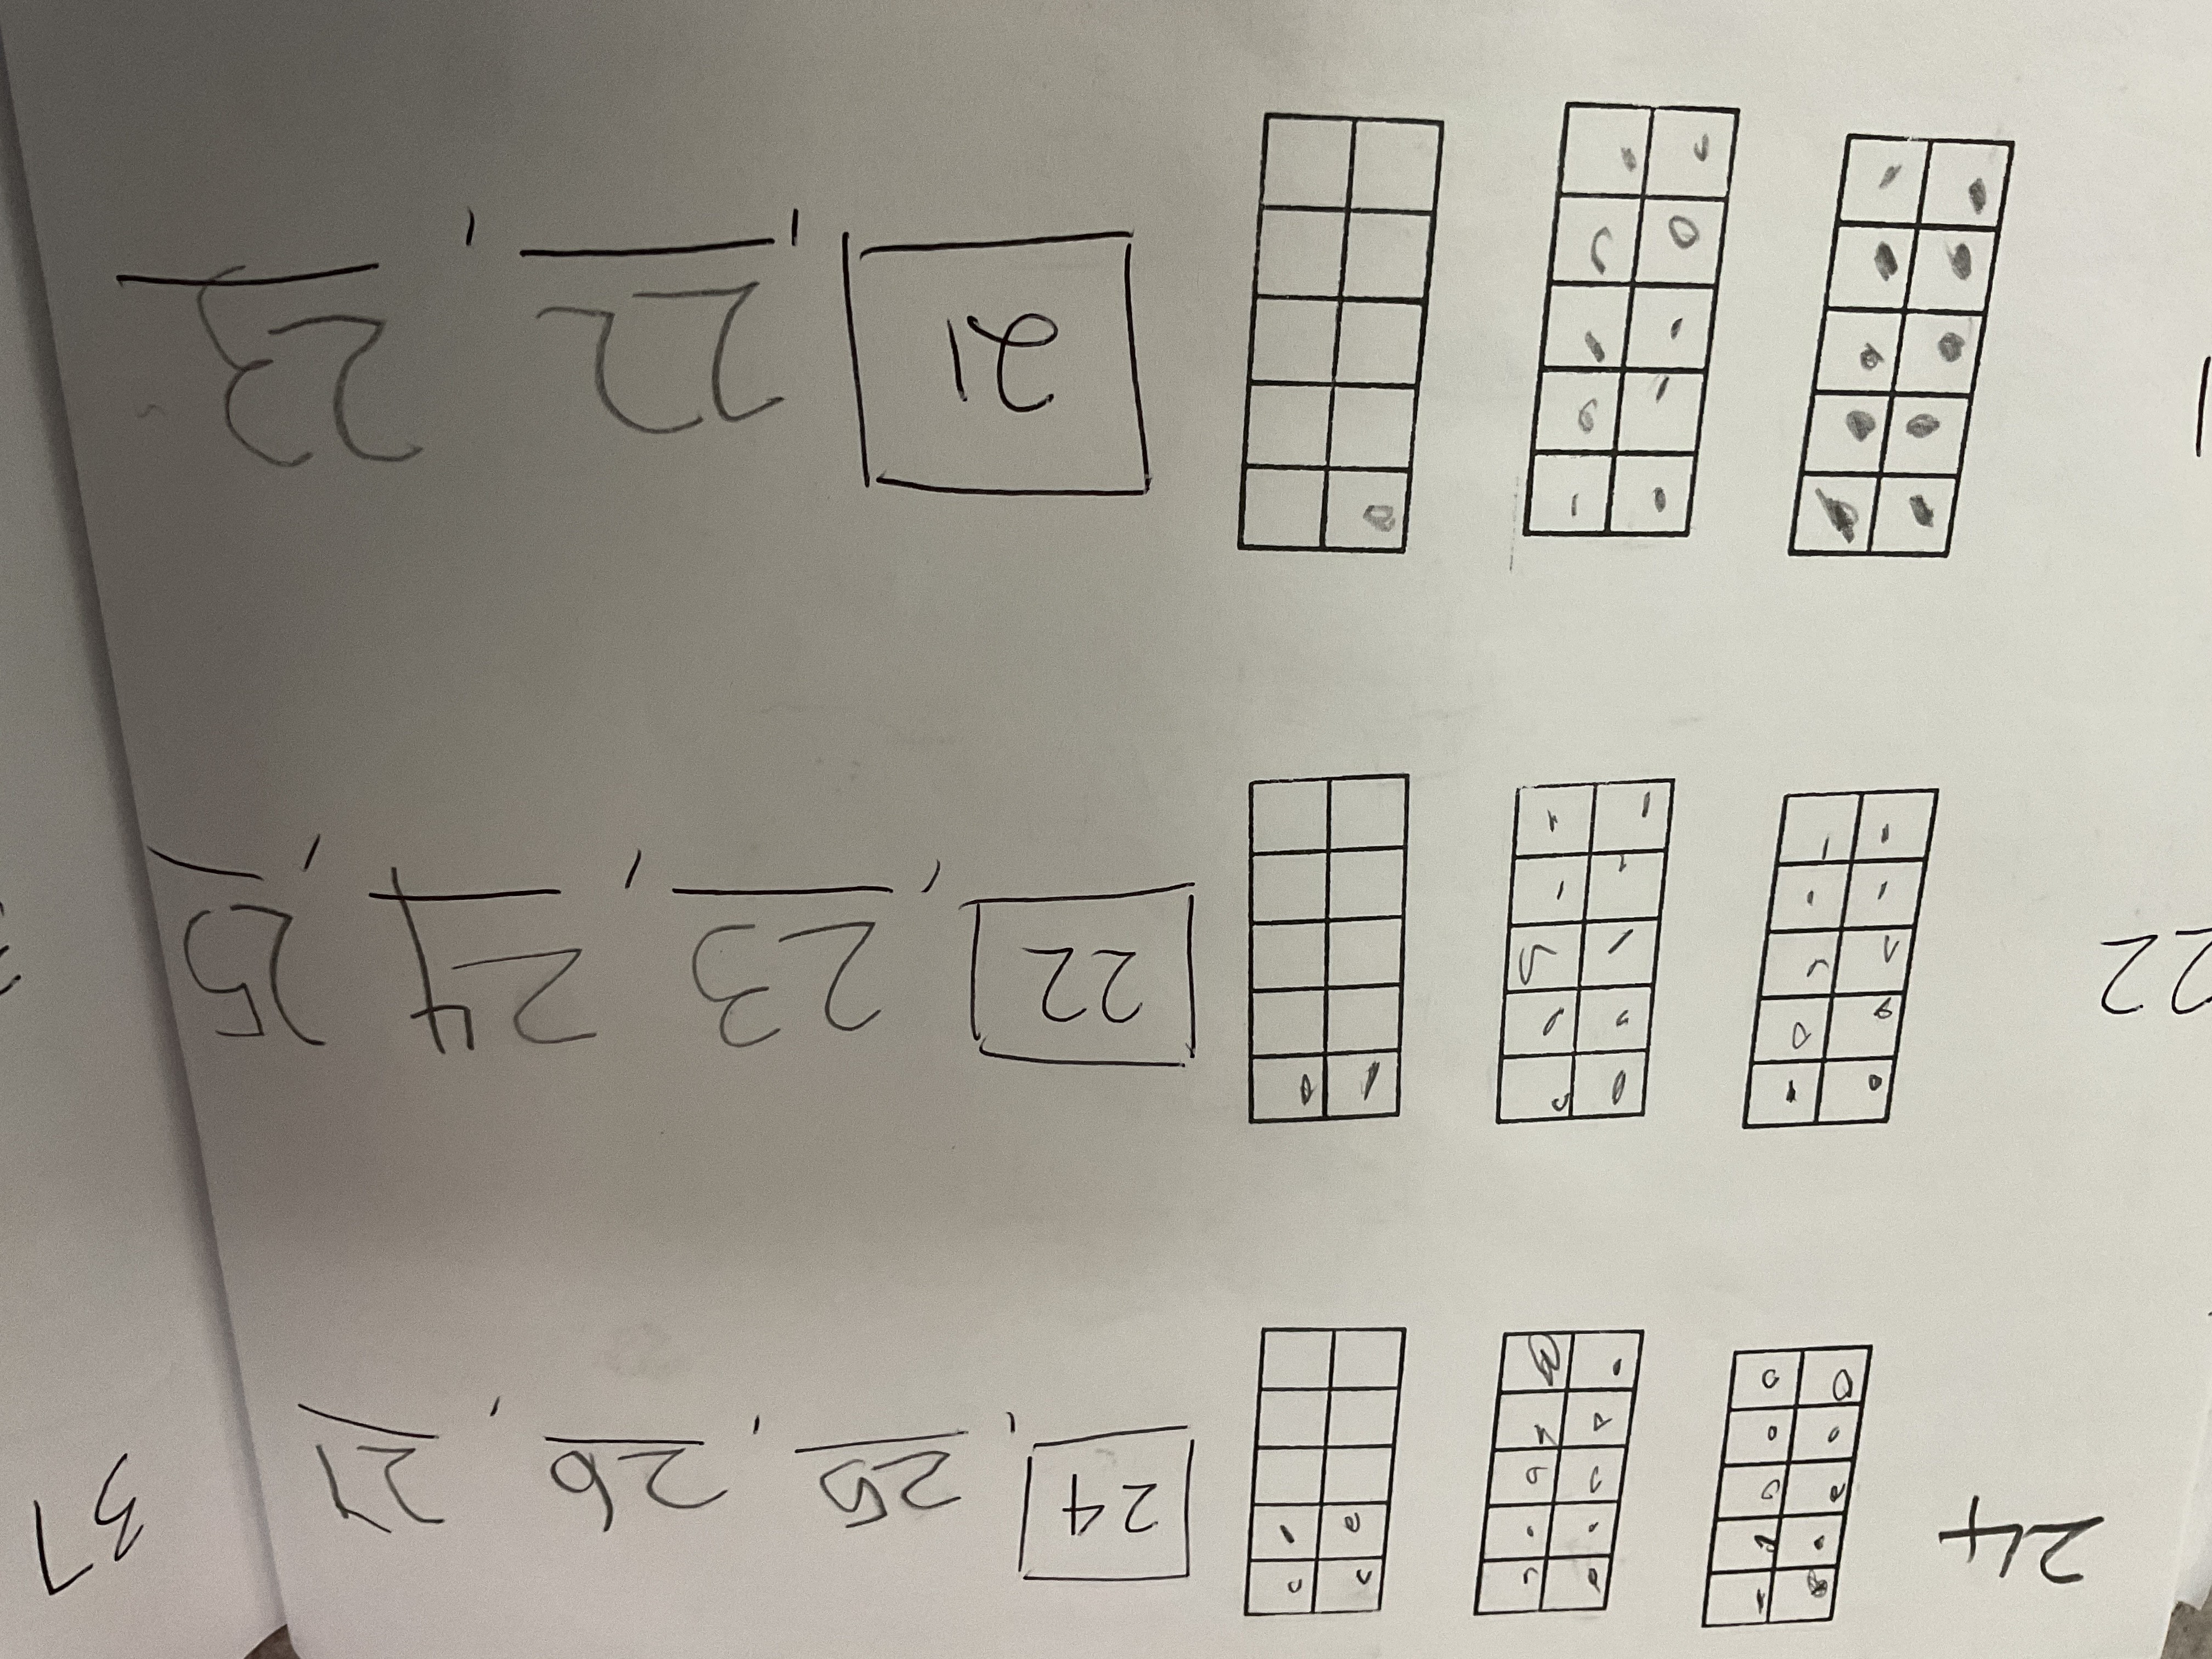 24 24, 25, 26, 27
22 22, 23, 24, 25
21, 22, 23